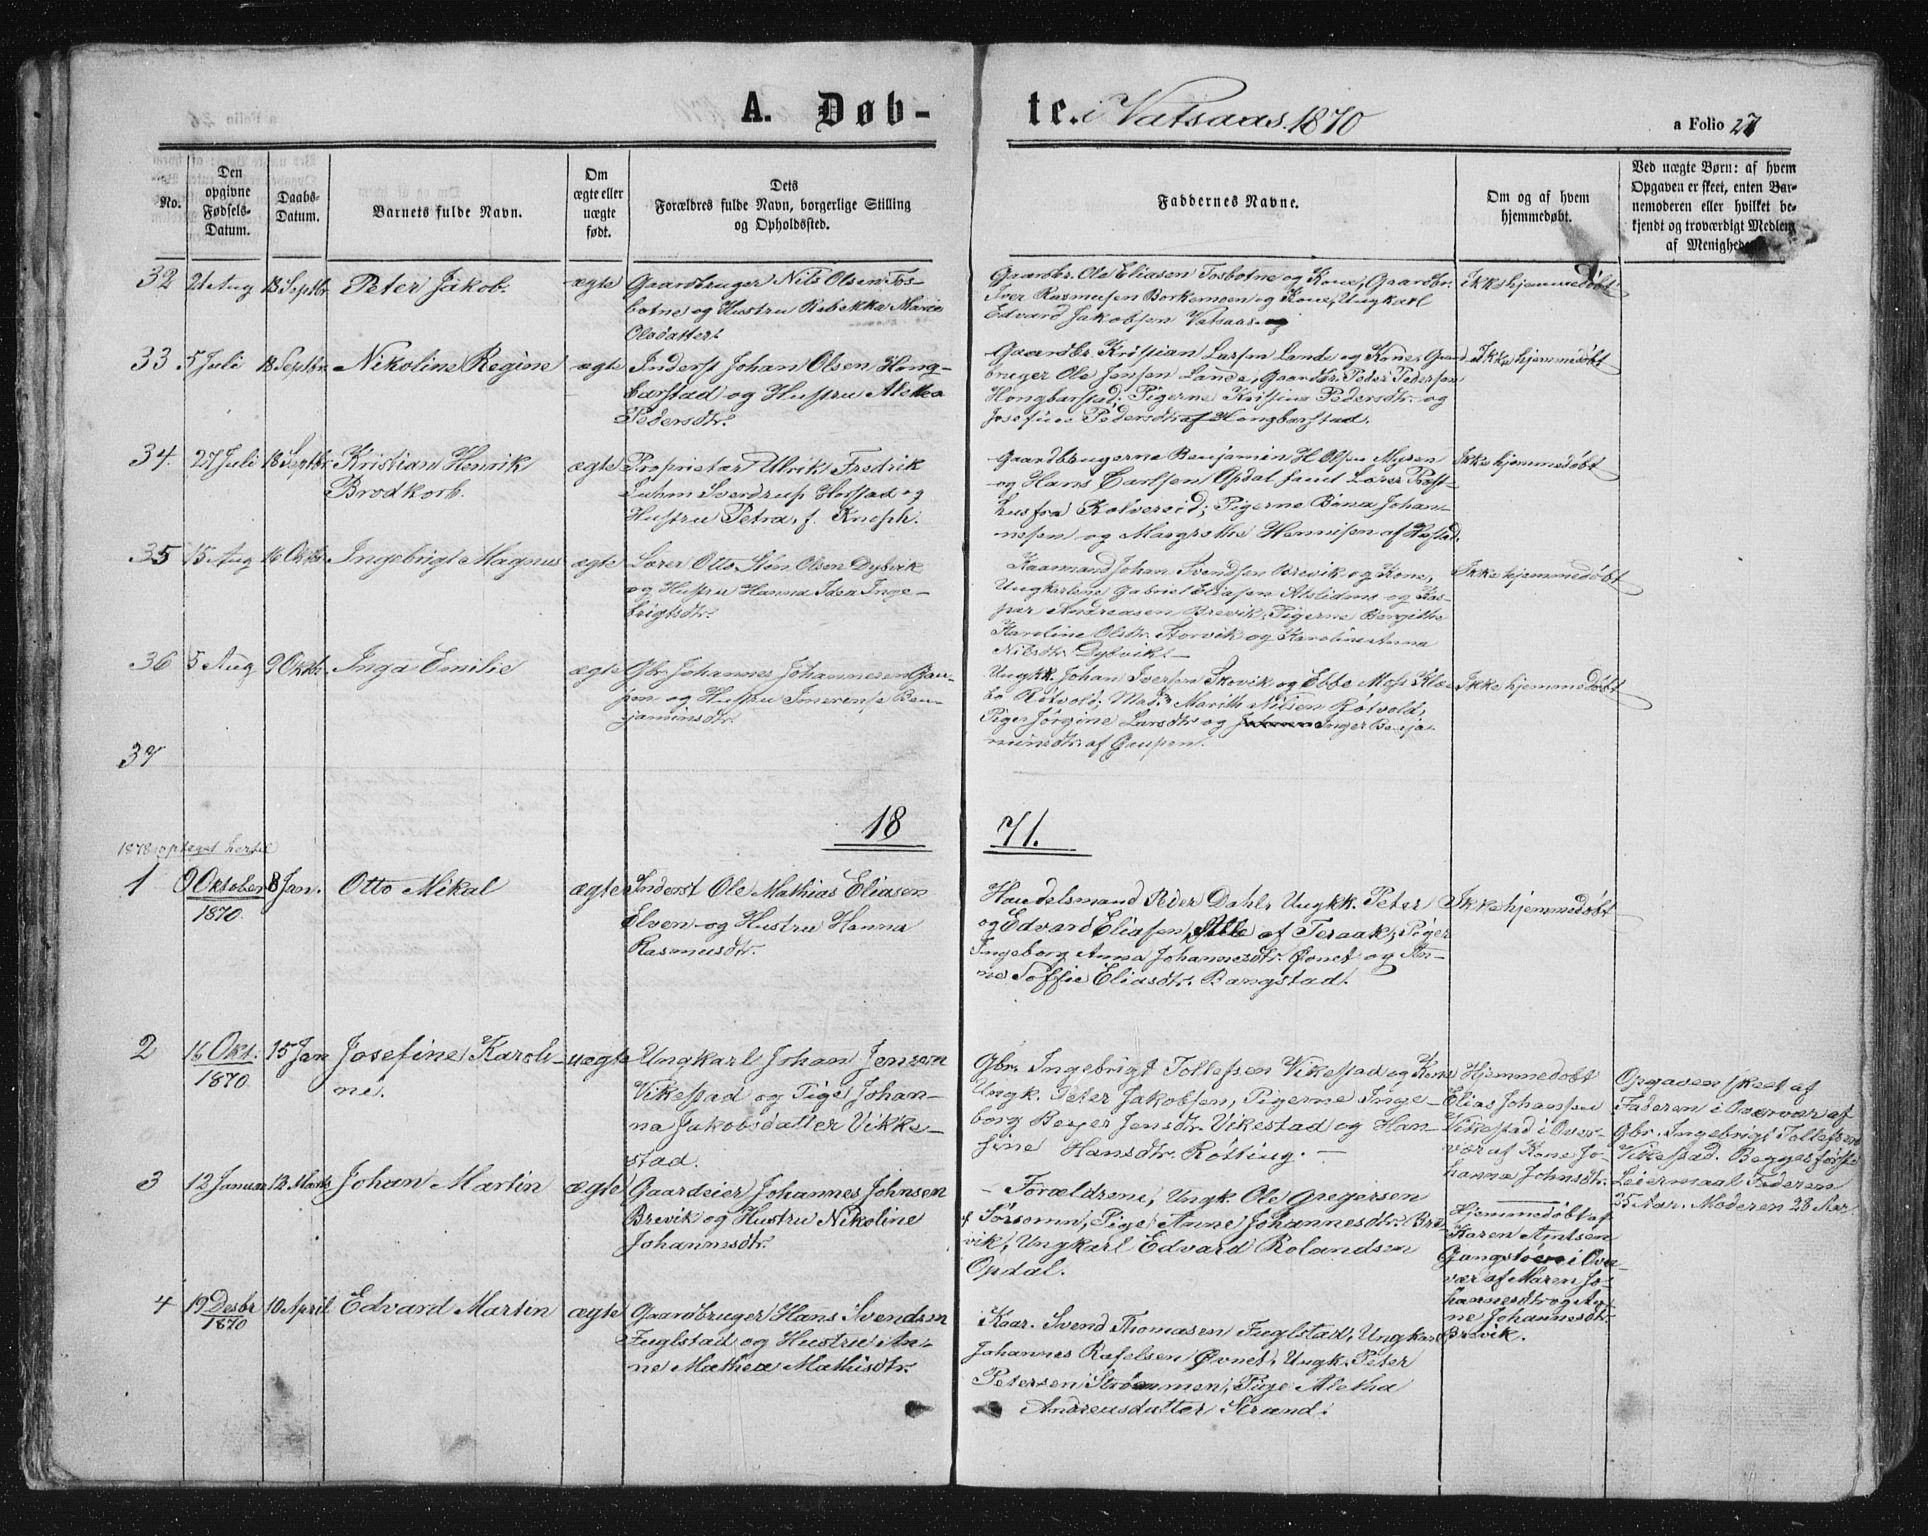 A. Døb-
te. i Vatsaas 1870
a Folio 27
No.
Den
opgivne
Fødsels-
Datum.
Daabs-
Datum.
Barnets fulde Navn.
Om
ægte eller
uægte
født.
Dets
Forældres fulde Navn, borgerlige Stilling
og Opholdssted.
Faddernes Navne.
Om og af hvem
hjemmedøbt.
Ved uægte Børn: af hvem
Opgaven er skeet, enten Bar-
nemoderen eller hvilket be-
kjendt og troværdigt Medlem
af Menigheden.
32
21 Aug
18 Septbr
Peter Jakob.
ægte
Gaardbruger Nils Olsen Fos-
botne og Hustru Rebekka Marie
Olsdatter.
Gaardbr. Ole Eliasen Fosbotne og Kone, Gaardbr.
Iver Rasmusen Borkemoen og Kone, Ungkarl
Edvard Jakobsen Vatsaas og
Ikke hjemmedøbt
33
5 Juli
18 Septbr.
Nikoline Regine
ægte
Inderst Johan Olsen Hong-
barstad og Hustru Aletta
Pedersdtr.
Gaardbr. Kristian Larsen Lande og Kone, Gaard-
bruger Ole Jensen Lande, Gaardbr. Peder Pedersen
Hongbarstad; Pigerne Kristine Pedersdtr. og
Josefine Pedersdtr. af Hongbarstad.
Ikke hjemmedøbt
34.
27 Juli
18 Septbr.
Kristian Henrik
Brodkorb.
ægte
Proprietær Ulrik Fredrik
Sverdrup og
Hustru Petra, f. Knoph.
Gaardbrugerne Benjamin H Olsen
og Hans Carlsen Opdal samt Lærer Præst-
hus fra Kolvereid; Pigerne Johan-
nesen og Margrethe af
Ikke hjemmedøbt
35
15 Aug
16 Oktbr.
Ingebrigt Magnus
ægte
Lærer Otto Olsen Dybvik
og Hustru Hanna Inge-
brigtsdtr.
Kaarmand Johan Svendsen Brevik og Kone,
Ungkarlene Gabriel Eliasen og Kas-
per Andreasen Brevik, Pigerne Bergitte
Karoline Olsdtr. Storvik og Karoline Anna
Nilsdtr. Dybvik.
Ikke hjemmedøbt
36
5 Aug
9 Oktbr.
Inga Emilie
ægte
Gbr. Johannes Johannesen Gau-
pen og Hustru Ben-
jaminsdtr.
Ungkk. Johan Iversen Skovik og Ebbe
Rotvold; Mad. Marith Nilsen Rotvold,
Piger Jørgine Larsdtr. og Inger Benja
minsdtr. af Gaupen.
Ikke hjemmedøbt
37
18
71.
1878 optaget hertil
1
9 Oktober
1870.
8 Jan.
Otto Mikal
ægte
Inderst Ole Mathias Eliasen
Elven og Hustru Hanna
Rasmusdtr.
Handelsmand Peder Dahl, Ungkk. Peter
og Edvard Eliasen, Alle af Teraak; Piger
Ingeborg Anna Johannesdtr. Øvnet og An-
ne Soffie Eliasdtr. Bangstad.
Ikke hjemmedøbt
2
16 Okt.
1870
15 Jan
Josefine Karoli-
ne.
uægte
Ungkarl Johan Jensen
Vikestad og Pige Johan-
na Jakobsdatter Vikke-
stad.
Gbr. Ingebrigt Tollefsen Vikestad og Kone
Ungk. Peter Jakobsen, Pigerne Inge-
borg Beyer Jensdtr. Vikestad og Han-
sine Hansdtr. Røsting. —
Hjemmedøbt
Elias Johansen
Vikestad i Over-
vær af Kone Jo-
hanna Johnsdtr.
Opgaven skeet af
Faderen i Overvær af
Gbr. Ingebrigt Tollefsen
Vikestad. Begges første
Leiermaal Faderen
35 Aar. Moderen 28 Aar.
3
12 Januar
12 Marts
Johan Martin
ægte
Gaardeier Johannes Johnsen
Brevik og Hustru Nikoline
Johannesdtr.
- Forældrene, Ungk. Ole Gregersen
Sørsomn, Pige Anne Johannesdtr. Bre
vik, Ungkarl Edvard Rolandsen
Opdal.
Hjemmedøbt af
Karen Arntsen
Gangstøen i Over-
vær af Maren Jo-
hannesdtr. og An-
ne Johannesdtr.
Brevik.
4
19 Desbr
1870
10 April
Edvard Martin
ægte
Gaardbruger Hans Svendsen
Fuglstad og Hustru An-
ne Mathea Mathisdtr.
Kaar. Svend Thomasen Fuglstad, Ungkarl
Johannes Rafelsen Øvnet, Ungk. Peter
Petersen Strømmen, Pige Aletha
Andreasdatter Strand.